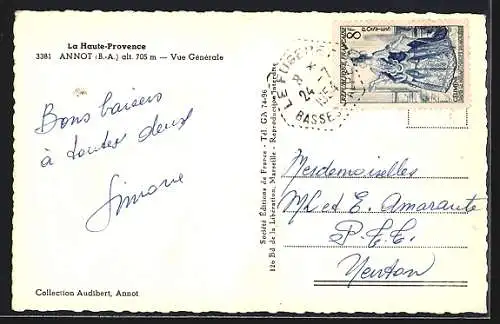 La Haute-Provence
3381 ANNOT (B.-A.) alt. 705 m — Vue Générale
Bons baisers
à toutes deux
Simone
Collection Audibert, Annot
Société Éditions de France - Tél. GA 74-96
126 Bd de la Libération, Marseille - Reproduction Interdite
LE FUGERET
8 *
24 -7
1954
BASSES
8F
Mesdemoiselles
et E. Amarante
P.E.E.
Menton